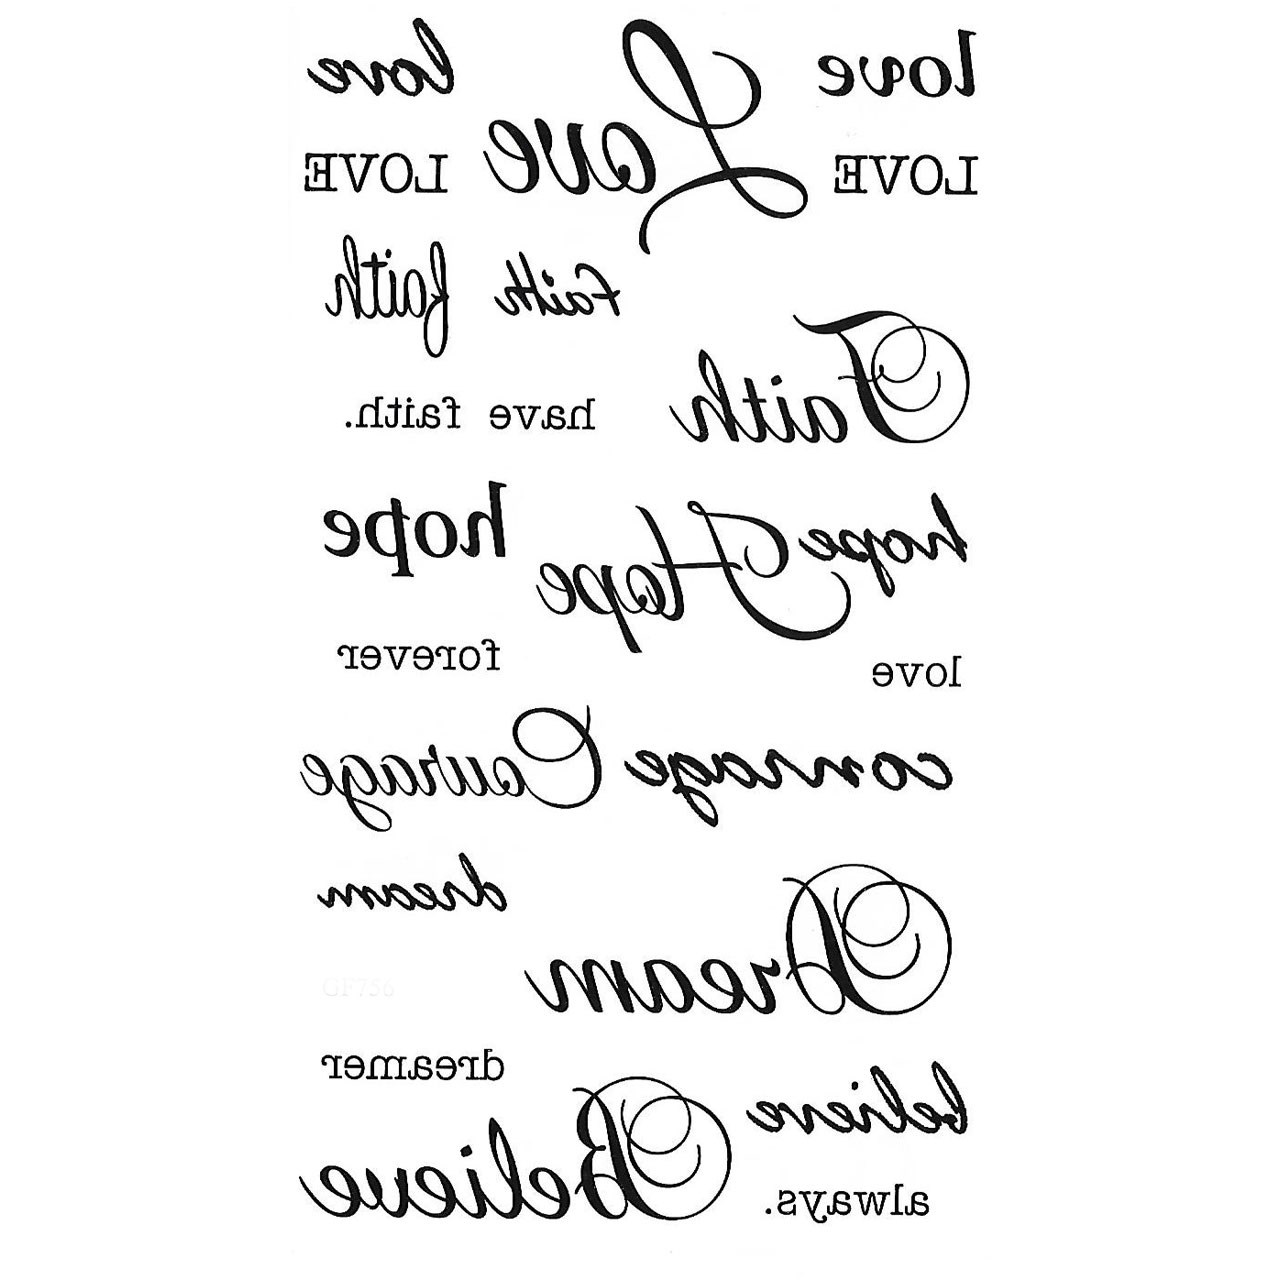 love Love love
LOVE LOVE
faith faith
Faith
have faith.
hope Hope hope
forever
love
courage Courage
dream
Dream
GF756
dreamer
believe
Believe
always.